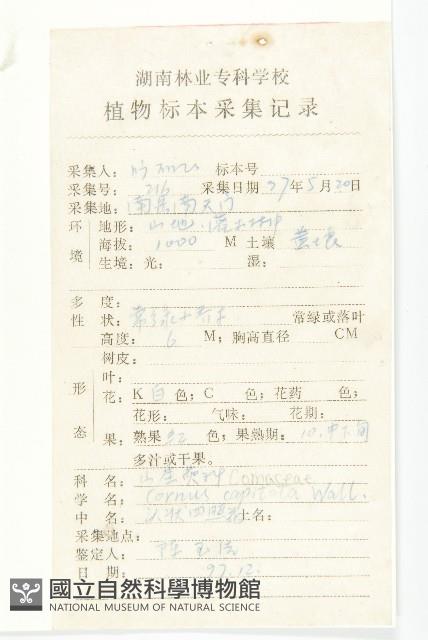 湖南林业专科学校
植物标本采集记录
采集人： 标本号
采集号：216 采集日期97年5月20日
采集地：南岳南天门
环境 地形：山地.灌木林中
海拔：1000 M 土壤 黄土壤
生境：光： 湿：
多 度：
性 状：常绿小乔木 常绿或落叶
高度：6 M；胸高直径 CM
树皮：
形态 叶：
花：K 白色；C 色；花药 色；
花形： 气味： 花期：
果：熟果红色；果熟期：10.中下旬
多汁或干果。
科 名：山茱萸科 Cornaceae
学 名：Cornus capitata Wall.
中 名：头状四照花 土名：
采集地点：
鉴定人：
日 期：97.12.
國立自然科學博物館
NATIONAL MUSEUM OF NATURAL SCIENCE